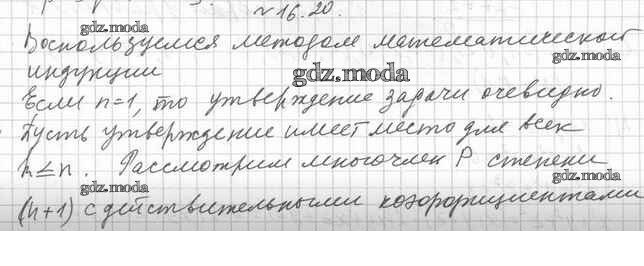 №16.20.
Воспользуемся методом математической
индукции
Если n=1, то утверждение задачи очевидно.
Пусть утверждение имеет место для всех
k≤n. Рассмотрим многочлен P степени
(n+1) с действительными коэффициентами
gdz.moda
gdz.moda
gdz.moda
gdz.moda
gdz.moda
gdz.moda
gdz.moda